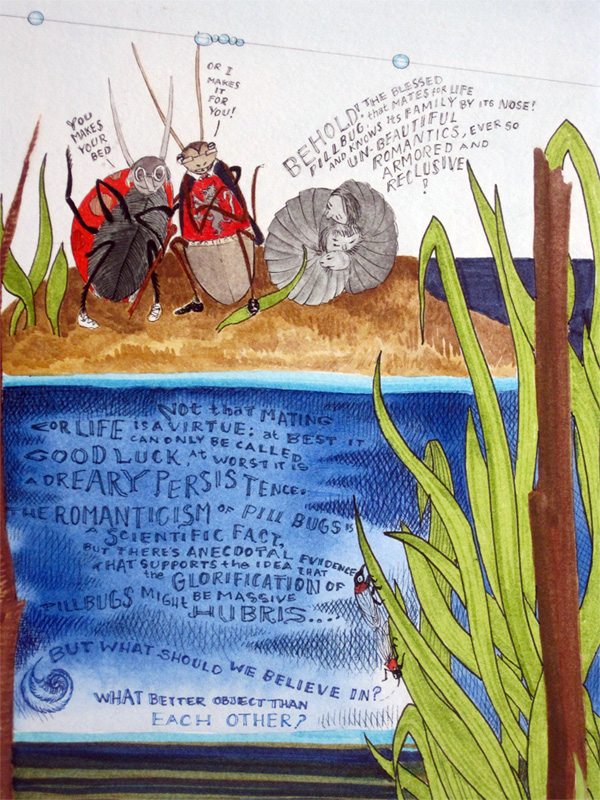 YOU
MAKES
YOUR
BED
OR I
MAKES
IT
FOR
YOU!
BEHOLD! THE BLESSED
PILLBUG, that MATES FOR LIFE
AND KNOWS ITS FAMILY BY ITS NOSE!
UN-BEAUTIFUL
ROMANTICS, EVER SO
ARMORED AND
RECLUSIVE
!
Not that MATING
FOR LIFE IS A VIRTUE: at BEST IT
CAN ONLY BE CALLED
GOOD LUCK, At WORST IT IS
A DREARY PERSISTENCE.
THE ROMANTICISM OF PILL BUGS IS
A SCIENTIFIC FACT,
BUT THERE'S ANECDOTAL EVIDENCE
tHAT SUPPORTS the IDEA tHAT
the GLORIFICATION OF
PILLBUGS MIGHT BE MASSIVE
HUBRIS....
BUT WHAT SHOULD WE BELIEVE IN?
WHAT BETTER OBJECT THAN
EACH OTHER?